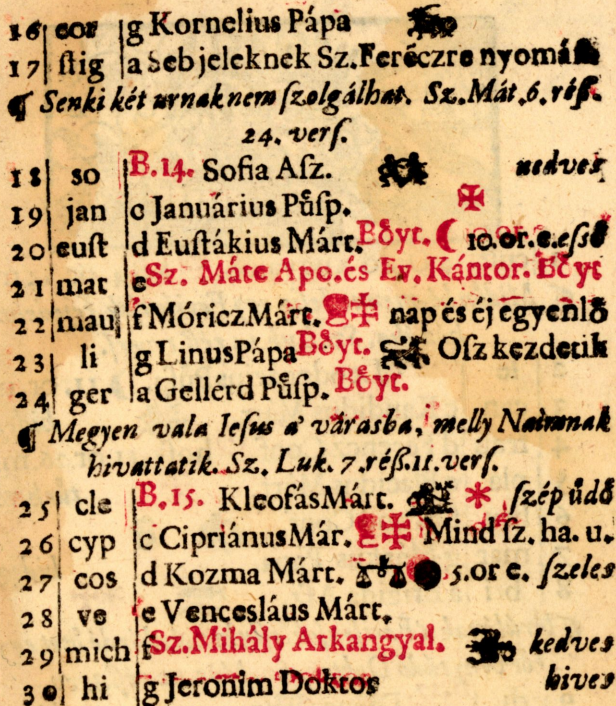 16 cor g Kornelius Pápa
17 ſtig a Sebjeleknek Sz. Ferēczre nyomáſa
¶ Senki két urnak nem ſzolgálhat. Sz. Mát. 6. réſz.
24. verſ.
18 so B. 14. Sofia Aſz. nedves
19 jan c Januárius Půſp.
20 euſt d Euſtákius Márt. Bőyt. ☾ 10. or. e. eſső
21 mat e Sz. Máte Apo. és Ev. Kántor. Bőyt
22 mau f Móricz Márt. nap és éj egyenlő
23 li g Linus Pápa Bőyt. Oſz kezdetik
24 ger a Gellérd Půſp. Bőyt.
¶ Megyen vala Ieſus a' várasba, melly Naimnak
hivattatik. Sz. Luk. 7. réſz. 11. verſ.
25 cle B. 15. Kleofás Márt. ſzép üdő
26 cyp c Cipriánus Már. Mind ſz. ha. u.
27 cos d Kozma Márt. 5. or e. ſzeles
28 ve e Vencesláus Márt.
29 mich f Sz. Mihály Arkangyal. kedves
30 hi g Jeronim Doktos hives